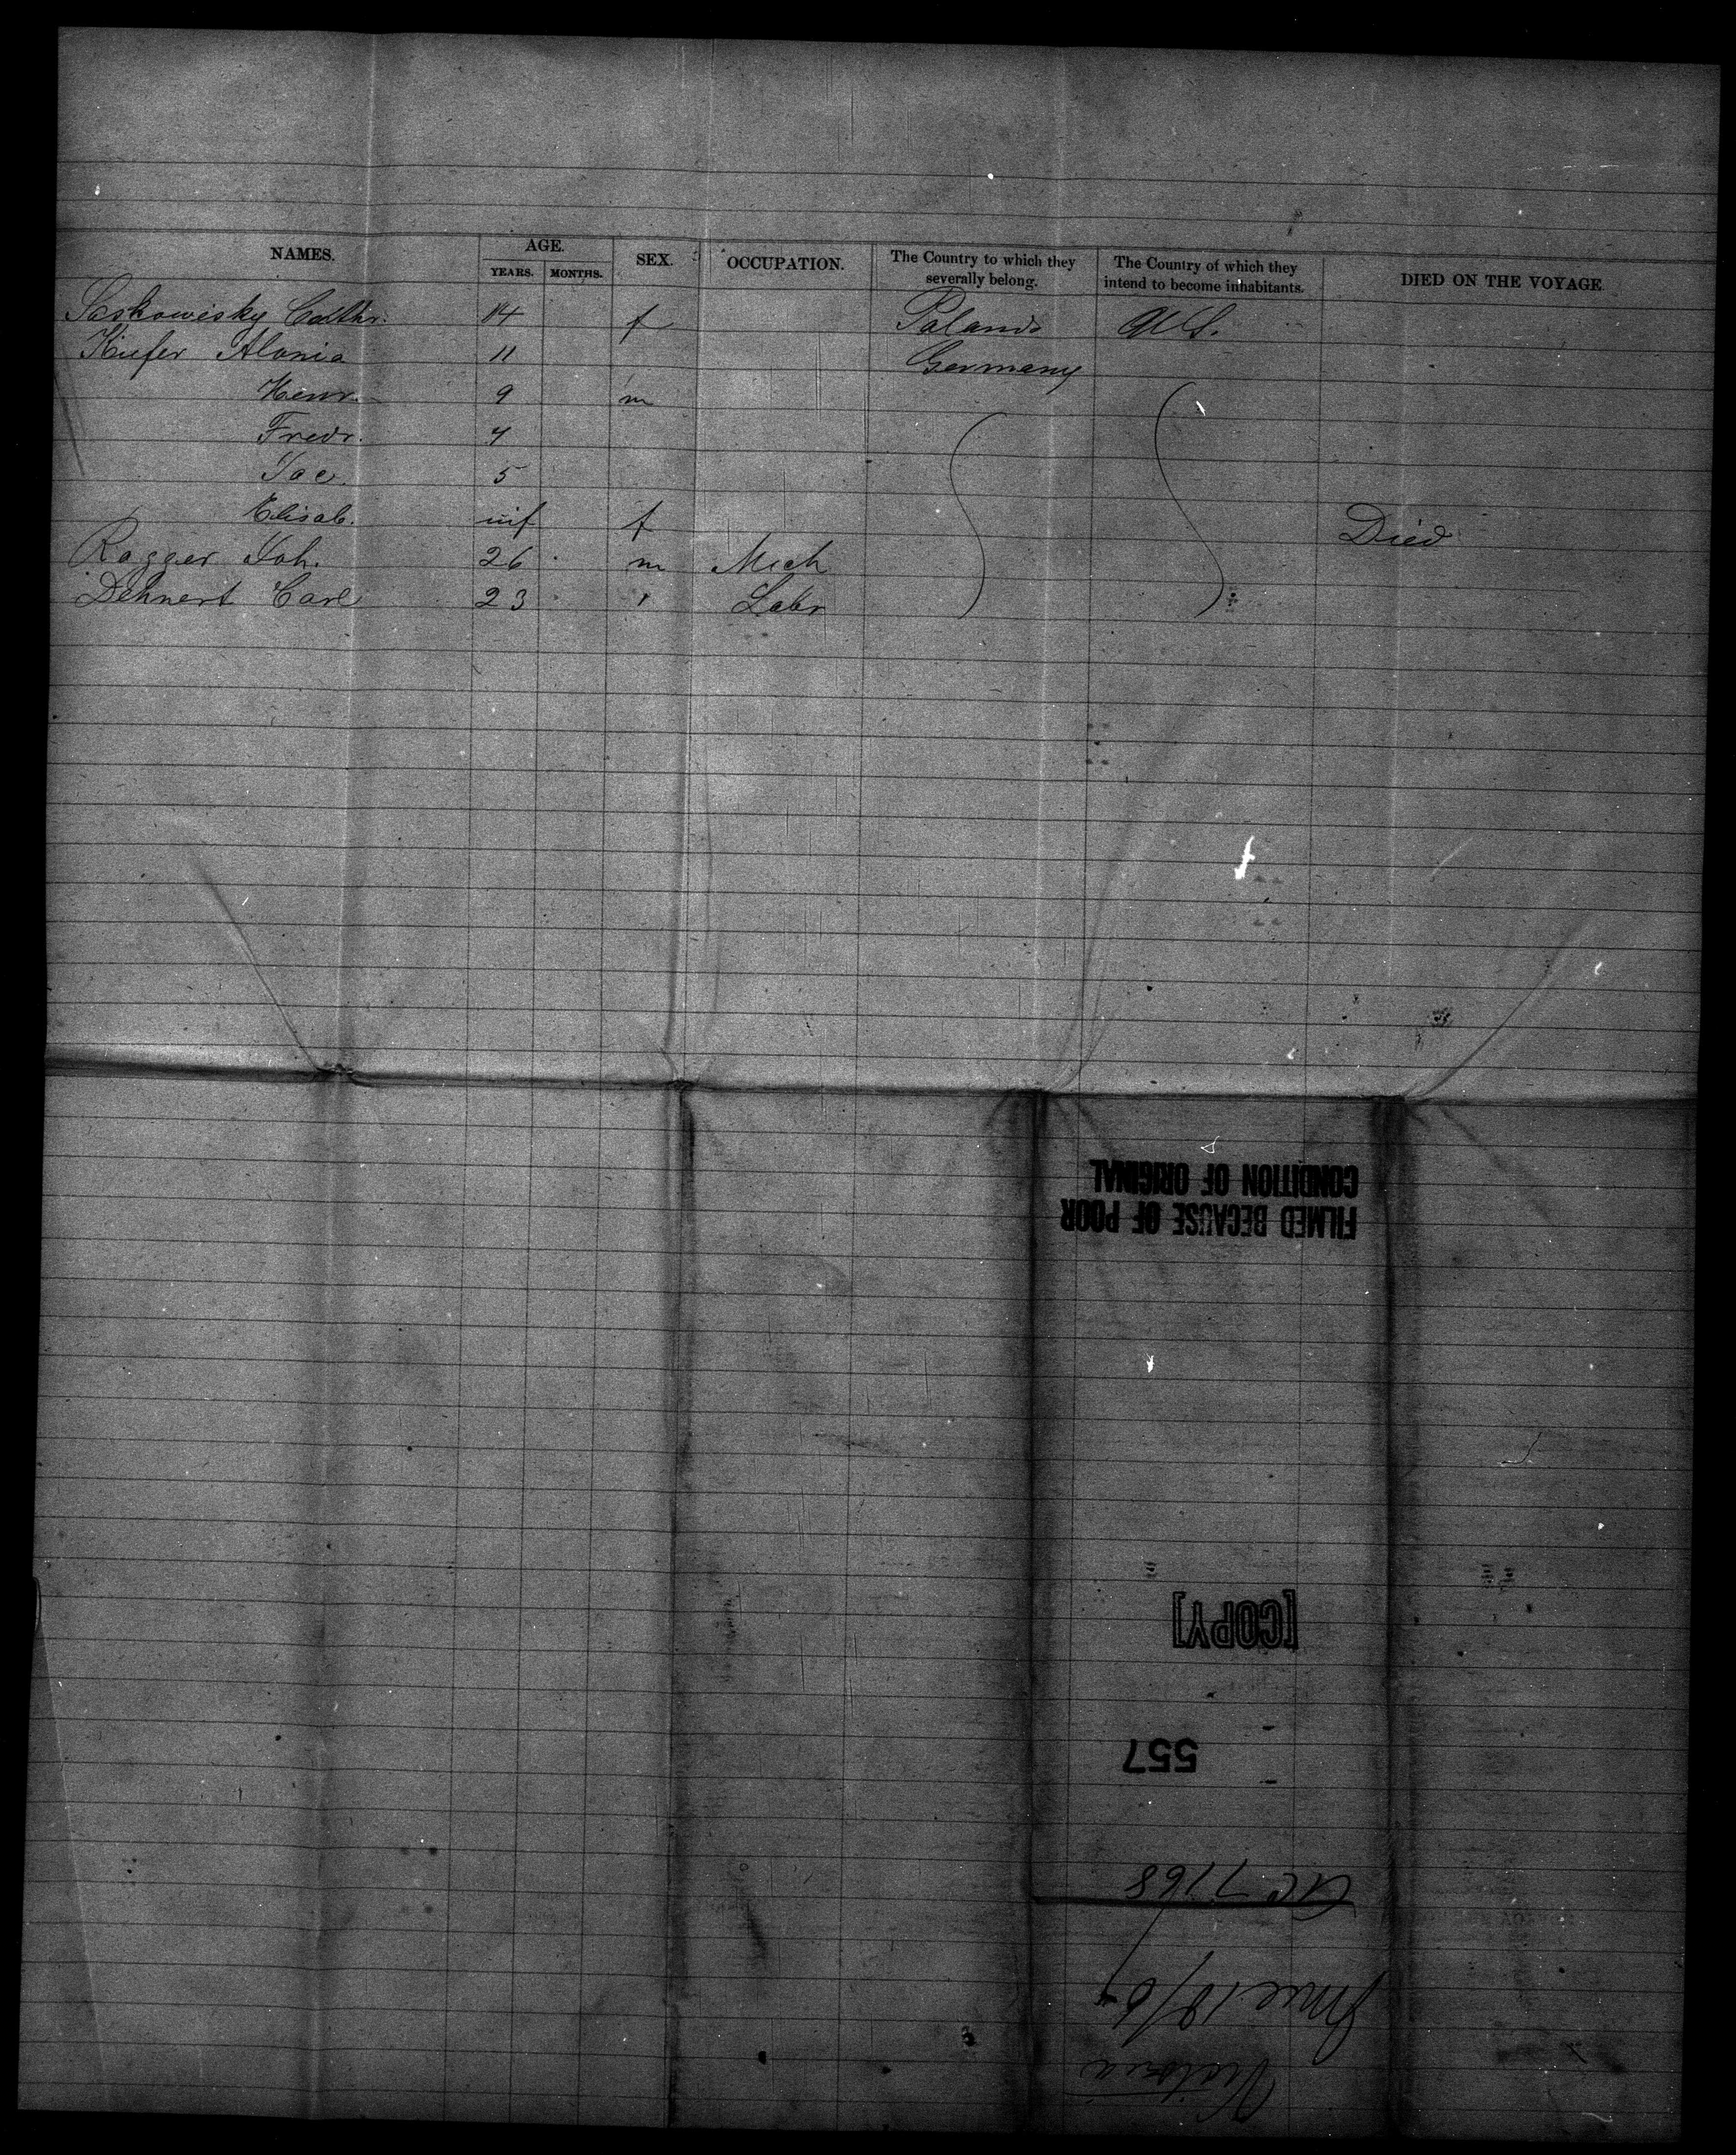 NAMES. AGE. SEX. OCCUPATION. The Country to which they severally belong. The Country of which they intend to become inhabitants. DIED ON THE VOYAGE
YEARS. MONTHS.
Saskowisky Cathr. 14 f Poland U.S.
Kiefer Alonia 11 Germany
Henr. 9 m
Fredr. 7
Jac. 5
Elisab. inf f Died
Rogger Joh. 26 m Mech
Dehnert Carl 23 " Labr
FILMED BECAUSE OF POOR
CONDITION OF ORIGINAL
[COPY]
557
Victoria
June 18/67
7168